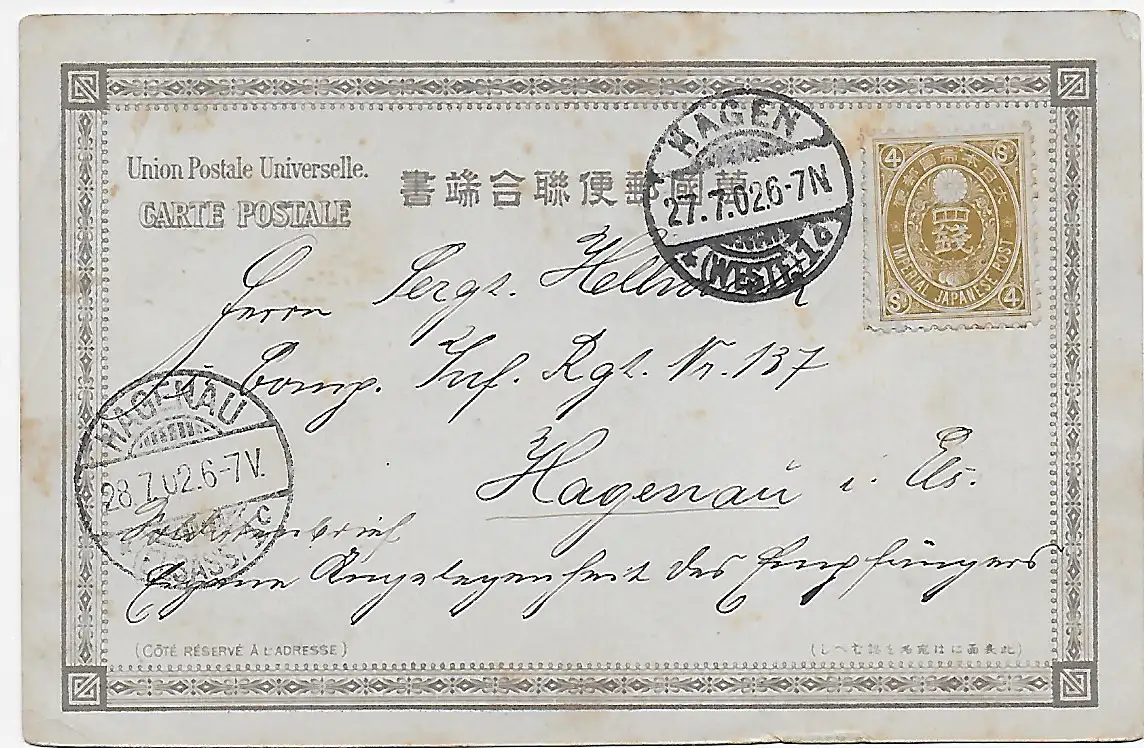 Union Postale Universelle.
CARTE POSTALE
書端合聯便郵國萬
HAGEN
27.7.02 6-7N
* (WESTF.) 1c
4 S
大日本帝國郵便
四錢
IMPERIAL JAPANESE POST
S 4
Herrn Sergt.
Comp. Inf. Rgt. Nr. 137
Hagenau i. Els.
HAGENAU
28.7.02.6-7V.
Soldatenbrief
Eigene Angelegenheit des Empfängers
(CÔTÉ RÉSERVÉ À L'ADRESSE)
(しへむ認を名宛はに面表此)